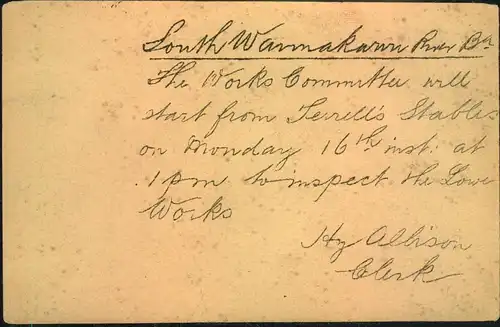 South Waimakariri River Bd
The Works Committee will
start from Terrell's Stables
on Monday 16th inst. at
1 pm to inspect the Lower
Works
Hy Allison
Clerk